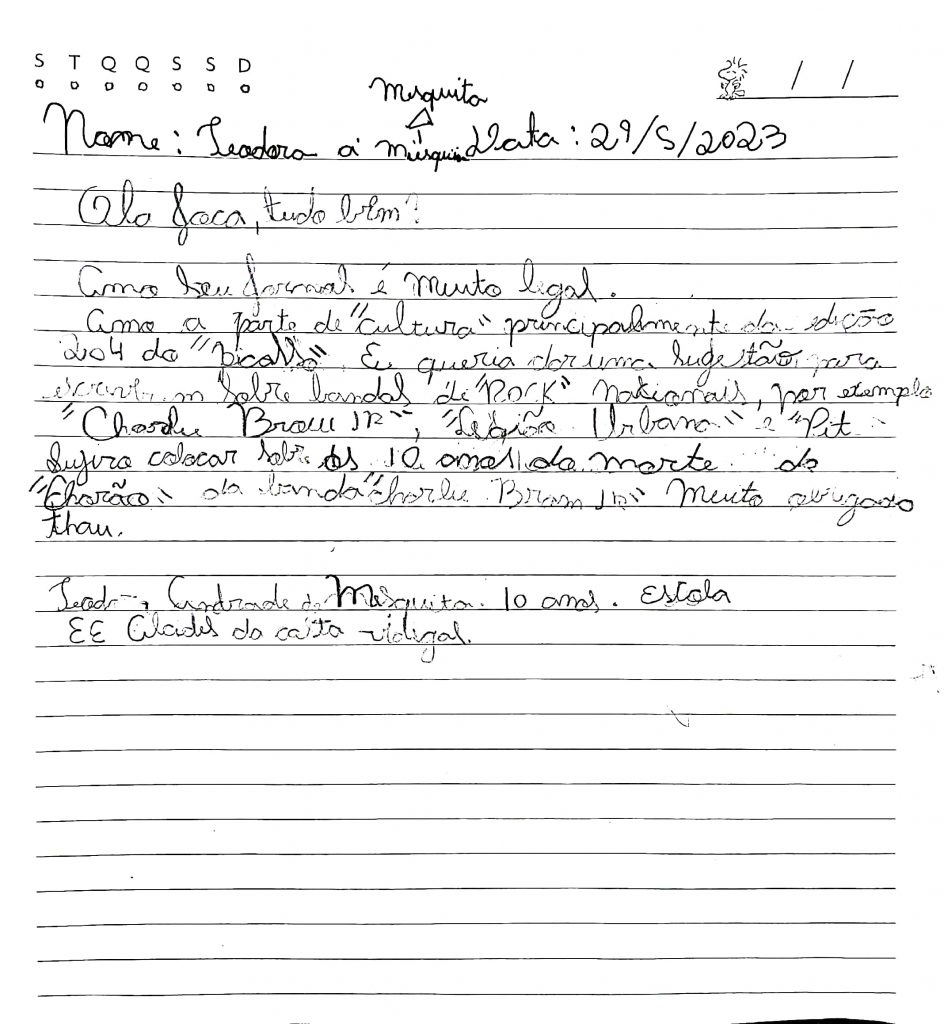 S T Q Q S S D
/ /
Mesquita
Nome: Teodoro a Data: 29/5/2023
Ola Joca, tudo bem?
Amo seu jornal é muito legal.
Amo a parte de "cultura" principalmente da edição
204 do "picasso". E queria dar uma sugestão, para
sobre bandas de "ROCK" nacionais, por exemplo
"Charlie Brow JR", "Legião Urbana" e "Pit
Sujiro colocar sobre os 10 anos da morte do
"Chorão" da banda "Charlie Brow JR" Muito obrigado
thau.
Andrade de Mesquita. 10 anos. Escola
EE Alcides da casta vidigal.